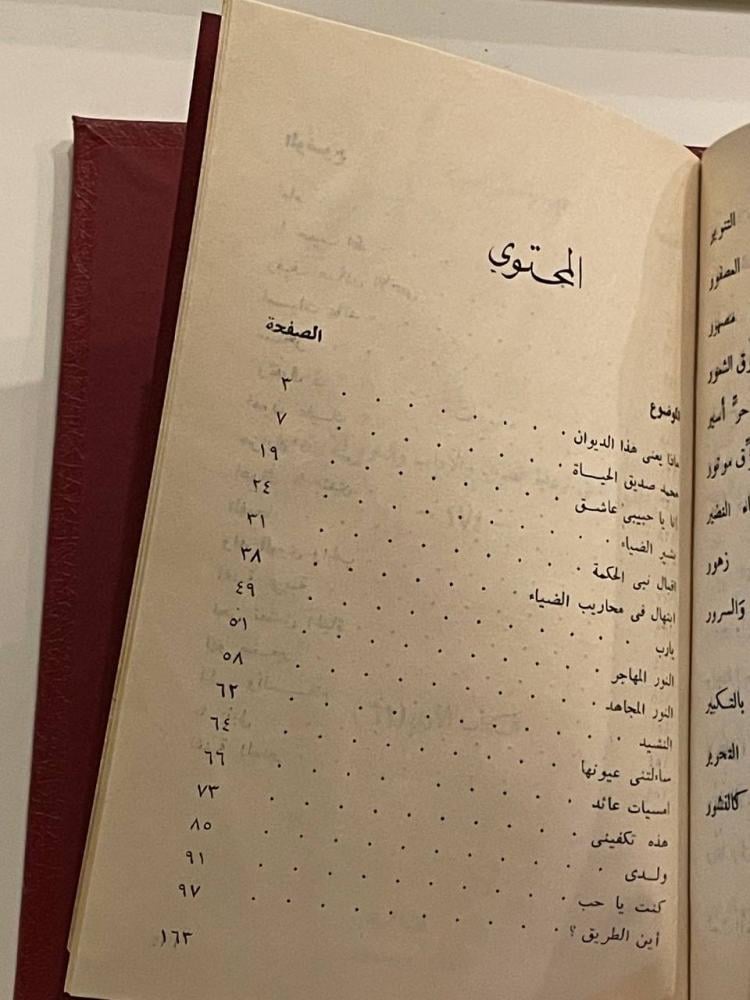 المحتوي
الموضوع الصفحة
ماذا يعنى هذا الديوان . . . . . . . ٣
محمد صديق الحياة . . . . . . . ٧
انا يا حبيبى عاشق . . . . . . . ١٩
بشير الضياء . . . . . . . . ٢٤
اقبال نبى الحكمة . . . . . . . ٣١
ابتهال فى محاريب الضياء . . . . . . ٣٨
يارب . . . . . . . . . ٤٩
النور المهاجر . . . . . . . . ٥١
النور المجاهد . . . . . . . . ٥٨
النشيد . . . . . . . . . ٦٢
ساءلتنى عيونها . . . . . . . ٦٤
امسيات عائد . . . . . . . . ٦٦
هذه تكفينى . . . . . . . . ٧٣
ولدى . . . . . . . . . ٨٥
كنت يا حب . . . . . . . . ٩١
أين الطريق ؟ . . . . . . . . ٩٧
١٦٣
التنوير
العصفور
مصهور
الشعور
حرّ أسير
موتور
النضير
زهور
والسرور
بالتكبير
التحرير
كالنشور